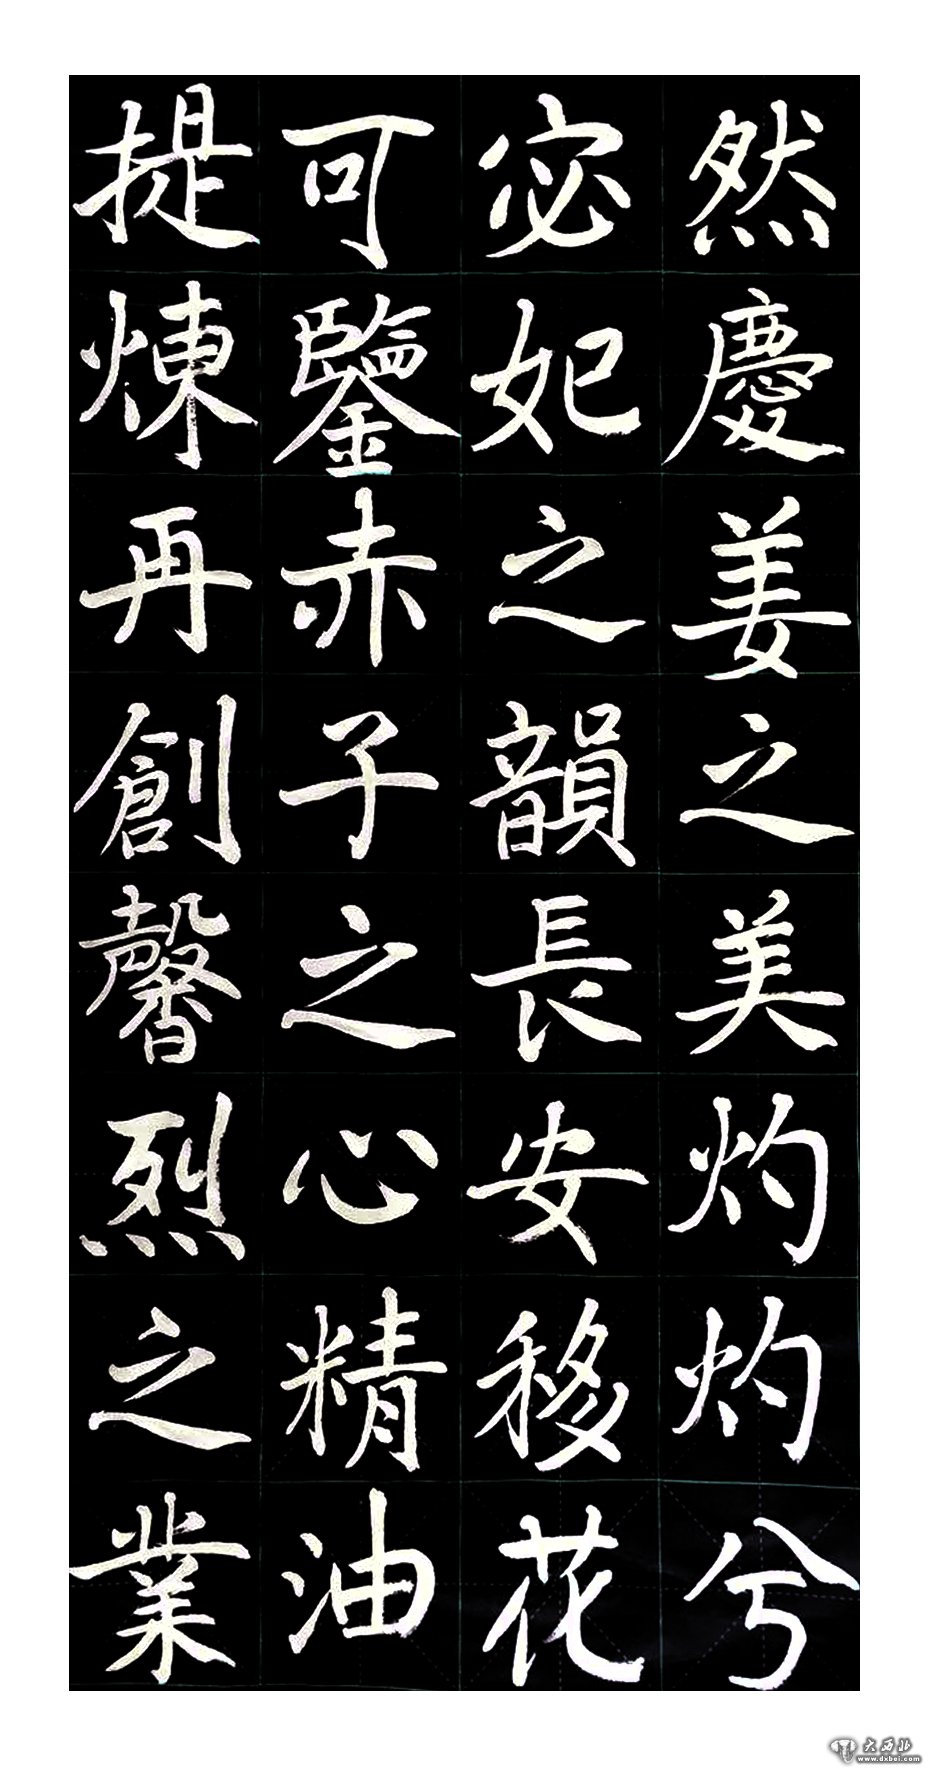 然慶姜之美灼灼兮
宓妃之韻長安移花
可鑒赤子之心精油
提煉再創馨烈之業
大西北
www.dxbei.com